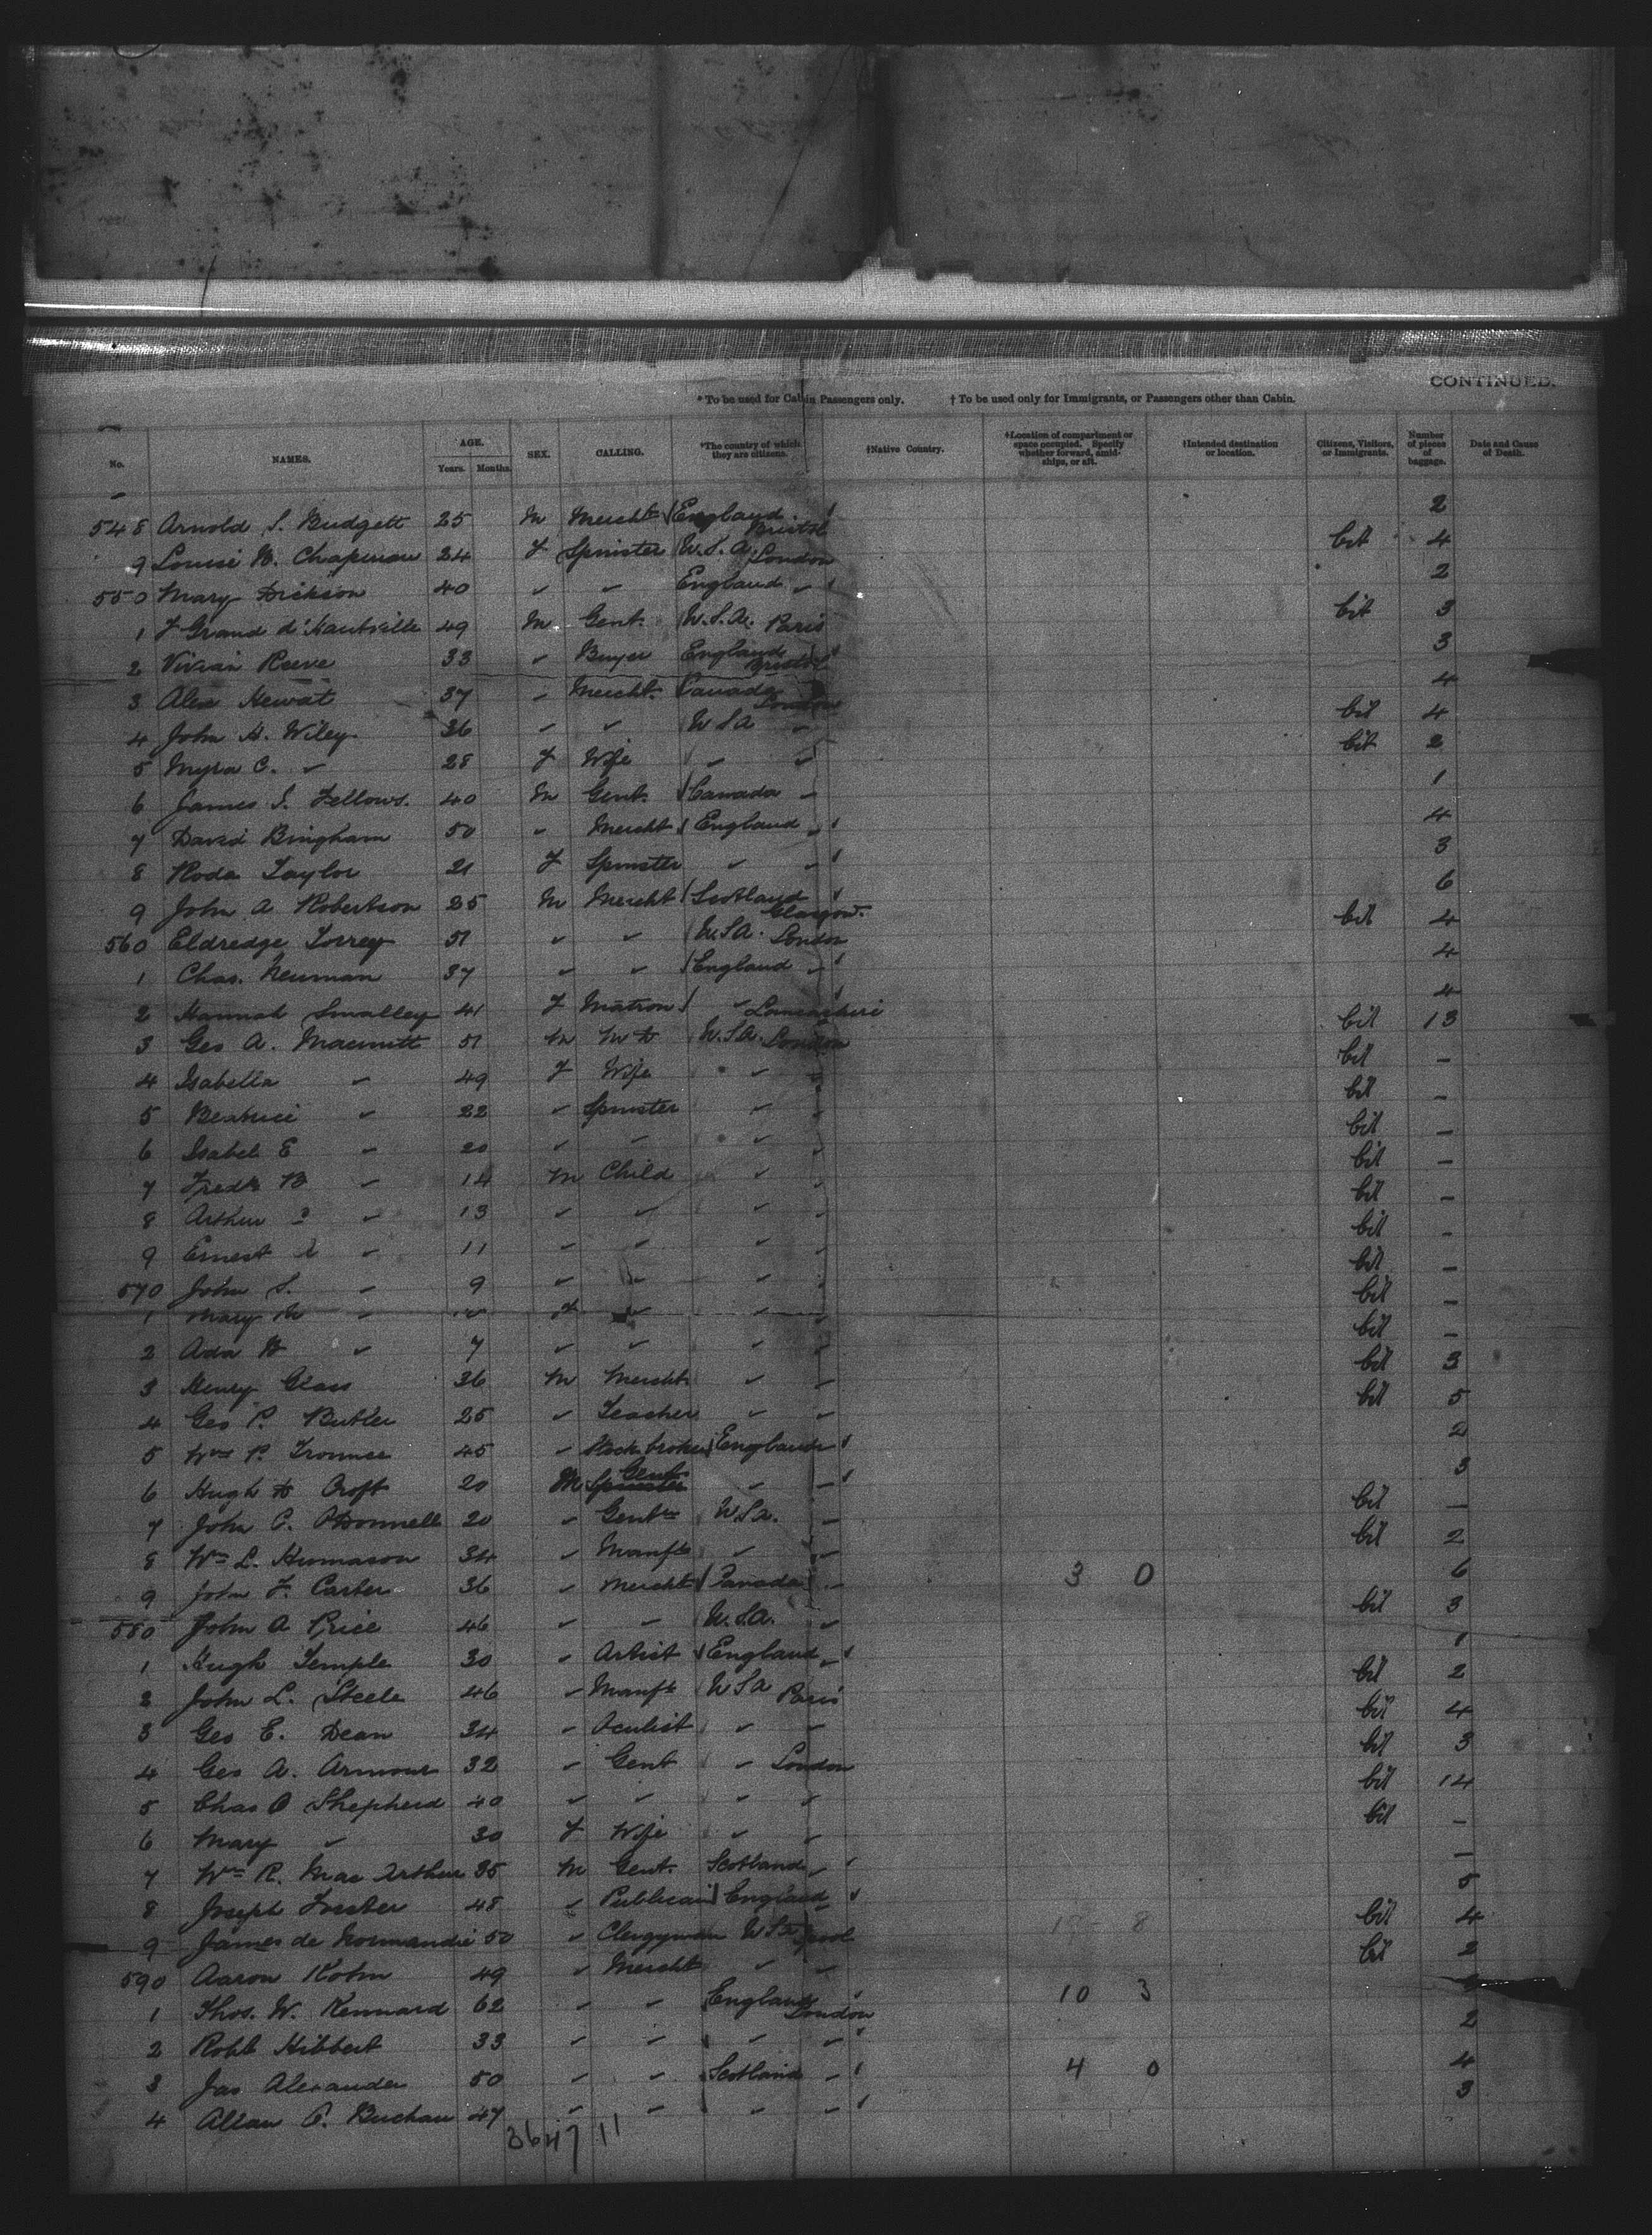 CONTINUED.
* To be used for Cabin Passengers only. † To be used only for Immigrants, or Passengers other than Cabin.
No. NAMES. AGE. Years. Months. SEX. CALLING. *The country of which they are citizens. †Native Country. †Location of compartment or space occupied. Specify whether forward, amidships, or aft. †Intended destination or location. Citizens, Visitors, or Immigrants. Number of pieces of baggage. Date and Cause of Death.
548 Arnold S. Budgett 25 M Mercht England Bristol 2
9 Louise W. Chapman 24 F Spinster U.S.A. London Cit 4
550 Mary Dickson 40 " " England " 2
1 F Grand d'Hauteville 49 M Gent. U.S.A. Paris Cit 3
2 Vivian Reeve 33 " Buyer England Bristol 3
3 Alex Hewat 37 " Mercht. Canada London 4
4 John H. Wiley 36 " " U S A " Cit 4
5 Myra C. " 28 F Wife " " Cit 2
6 James I. Fellows. 40 M Gent. Canada " 1
7 David Bingham 50 " Mercht England " 4
8 Roda Taylor 21 F Spinster " " 3
9 John A Robertson 25 M Mercht Scotland Glasgow. 6
560 Eldredge Torrey 51 " " U.S.A. London Cit 4
1 Chas. Neuman 37 " " England " 4
2 Hannah Smalley 41 F Matron " Lancashire 4
3 Geo A. 51 M M D U.S.A. London Cit 13
4 Isabella " 49 F Wife " " Cit –
5 Beatrice " 22 " Spinster " " Cit –
6 Isabel E " 20 " " " " Cit –
7 Fredk B " 14 M Child " " Cit –
8 Arthur " 13 " " " " Cit –
9 Ernest " 11 " " " " Cit –
570 John S. " 9 " " " " Cit –
1 Mary " F " " " Cit –
2 Ada " 7 " " " " Cit –
3 Henry Glass 36 M Mercht " " Cit 3
4 Geo P. Butler 25 " Teacher " " Cit 5
5 Wm P. 45 " Stock broker England " 2
6 Hugh D Croft 20 M Spinster Gent " " 3
7 John C. O'Donnell 20 " Gentn U.S.A. " Cit –
8 Wm L. Humason 34 " Manfr " " Cit 2
9 John F. Carter 36 " Mercht Canada " 3 0 6
580 John A Price 46 " " U.S.A. " Cit 3
1 Hugh Temple 30 " Artist England " 1
2 John L. Steele 46 " Manfr U S A Paris Cit 2
3 Geo E. Dean 34 " Oculist " " Cit 4
4 Geo A. Armour 32 " Gent " London Cit 3
5 Chas O Shepherd 40 " " " " Cit 14
6 Mary " 30 F Wife " " Cit –
7 Wm R. Mac Arthur 35 M Gent. Scotland " –
8 Joseph 48 " Publican England " 5
9 James de Normandie 50 " Clergyman U S A L'pool 8 Cit 4
590 Aaron Kohn 49 " Mercht " " Cit 2
1 Thos. W. Kennard 62 " " England London 10 3
2 Robt Hibbert 33 " " " " 2
3 Jas Alexander 50 " " Scotland " 4 0 4
4 Allan C. Buchan 47 " " " " 3
3647 11